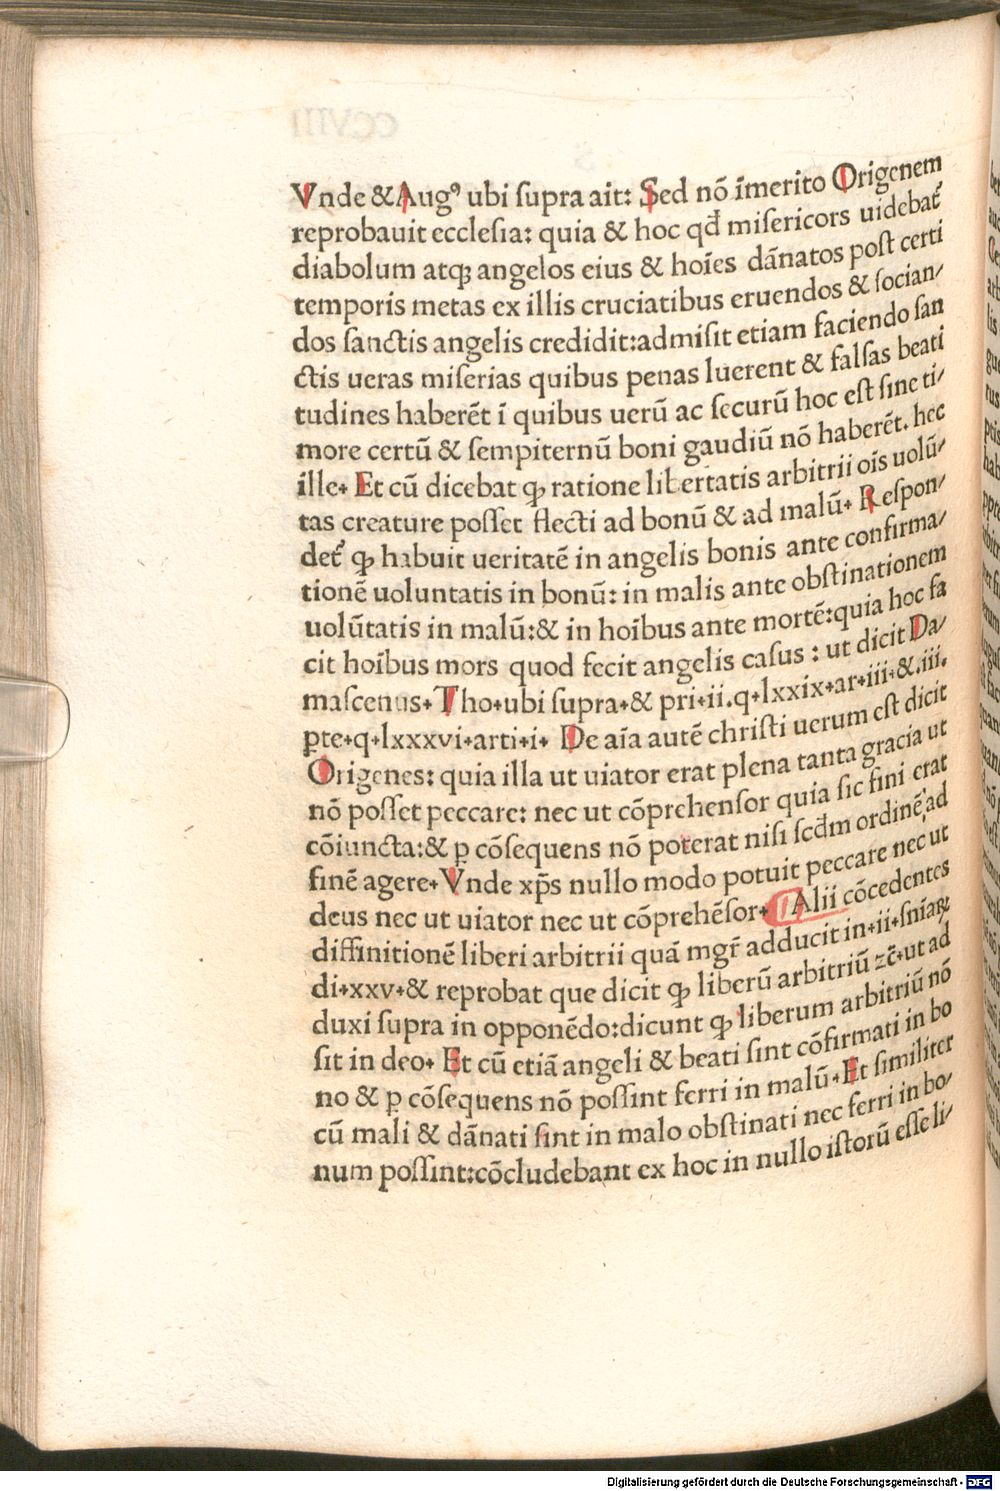 Vnde & Augꝰ ubi ſupra ait: Sed nō īmerito Origenem
reprobauit eccleſia: quia & hoc qđ miſericors uidebat᷑
diabolum atqꝫ angelos eius & hoīes dānatos poſt certi
temporis metas ex illis cruciatibus eruendos & ſocian/
dos ſanctis angelis credidit:admiſit etiam faciendo ſan
ctis ueras miſerias quibus penas luerent & falſas beati
tudines haberēt ī quibus uerū ac ſecurū hoc eſt ſine ti/
more certū & ſempiternū boni gaudiū nō haberēt. hec
ille. Et cū dicebat ꝙ ratione libertatis arbitrii oīs uolū/
tas creature poſſet flecti ad bonū & ad malū. Reſpon/
det᷑ ꝙ habuit ueritatē in angelis bonis ante confirma/
tionē uoluntatis in bonū: in malis ante obſtinationem
uolūtatis in malū:& in hoībus ante mortē:quia hoc fa
cit hoībus mors quod fecit angelis caſus : ut dicit Da/
maſcenus. Tho.ubi ſupra.& pri.ii.q.lxxix.ar.iii.&.iii.
ꝑte.q.lxxxvi.arti.i. De aīa autē chriſti uerum eſt dicit
Origenes: quia illa ut uiator erat plena tanta gracia ut
nō poſſet peccare: nec ut cōprehenſor quia ſic fini erat
cōiuncta:& ꝑ cōſequens nō poterat niſi ſcđm ordinē ad
finē agere. Vnde xp̄s nullo modo potuit peccare nec ut
deus nec ut uiator nec ut cōprehēſor. Alii cōcedentes
diffinitionē liberi arbitrii quā mgr̄ adducit in.ii.ſniaꝝ
di.xxv.& reprobat que dicit ꝙ liberū arbitriū zc̄.ut ad
duxi ſupra in opponēdo:dicunt ꝙ liberum arbitriū nō
ſit in deo. Et cū etiā angeli & beati ſint cōfirmati in bo
no & ꝑ cōſequens nō poſſint ferri in malū. Et ſimiliter
cū mali & dānati ſint in malo obſtinati nec ferri in bo/
num poſſint:cōcludebant ex hoc in nullo iſtorū eſſe li/
Digitalisierung gefördert durch die Deutsche Forschungsgemeinschaft - DFG